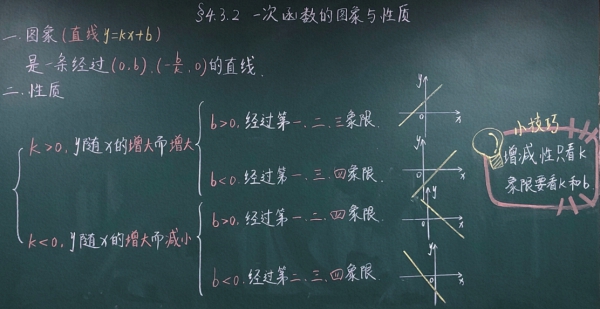 §4.3.2 一次函数的图象与性质
一.图象(直线y=kx+b)
是一条经过(0,b).(-b/k,0)的直线.
二.性质
k>0,y随x的增大而增大
b>0.经过第一.二.三象限.
b<0.经过第一.三.四象限.
k<0,y随x的增大而减小
b>0.经过第一.二.四象限.
b<0.经过第二.三.四象限
y
x
0
y
x
0
y
x
0
y
x
0
小技巧
增减性只看k
象限要看k和b.